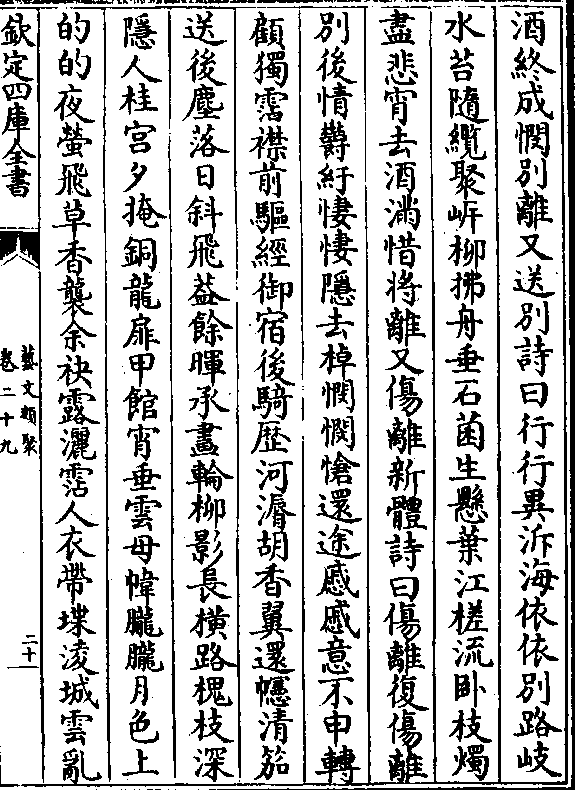 酒終成憫別離又送別詩曰行行異泝海依依別路歧
水苔隨纜聚岸柳拂舟垂石菌生懸葉江槎流卧枝燭
盡悲宵去酒滿惜將離又傷離新體詩曰傷離復傷離
別後情鬱紆悽悽隱去棹憫憫愴還途慼慼意不申轉
顧獨霑襟前驅經御宿後騎歴河漘胡香翼還幰清笳
送後塵落日斜飛葢餘暉承畫輪柳影長橫路槐枝深
隱人桂宮夕掩銅龍扉甲館宵垂雲母幃朧朧月色上
的的夜螢飛草香襲余袂露灑霑人衣帶堞凌城雲亂
欽定四庫全書
藝文類聚
卷二十九
二十